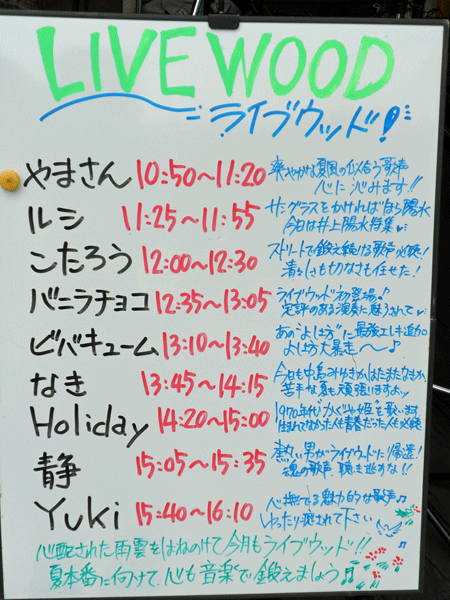 LIVE WOOD
ライブウッド!
やまさん 10:50〜11:20 爽やかな夏風の似合う歌声
心に沁みます!!
ルシ 11:25〜11:55 サングラスをかければ自ら陽水
今日は井上陽水特集
こたろう 12:00〜12:30 ストリートで鍛え続ける歌声必聴!
バニラチョコ 12:35〜13:05 ライブウッド初登場♪
定評のある演奏に魅うされて
ビバキューム 13:10〜13:40 最強エレキ追加
大暴走〜♪
なき 13:45〜14:15 今日も中島みゆきかはたまたなきか
苦手な夏も頑張りますよッ
Holiday 14:20〜15:00 1970年代かぐや姫を歌います
生まれてなかった人も青春だった人も必聴
静 15:05〜15:35 熱い男がライブウッドに帰還!
魂の歌声、聴き逃すな!!
Yuki 15:40〜16:10 魅力的な歌声♪
しっとり癒されて下さい
心配された雨雲をはねのけて今月もライブウッド!!
夏本番に向けて、心も音楽で鍛えましょう♫